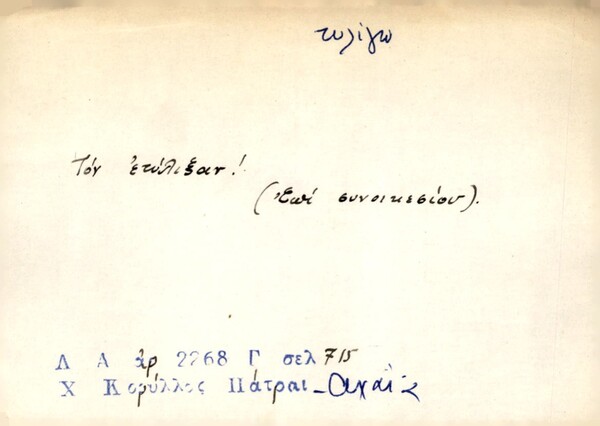 τυλίγω
Τόν ἐτύλιξαν!
(Ἐπί συνοικεσίου).
Λ Α ἀρ 2268 Γ σελ 715
Χ Κορύλλος Πάτραι-Ἀχαΐα